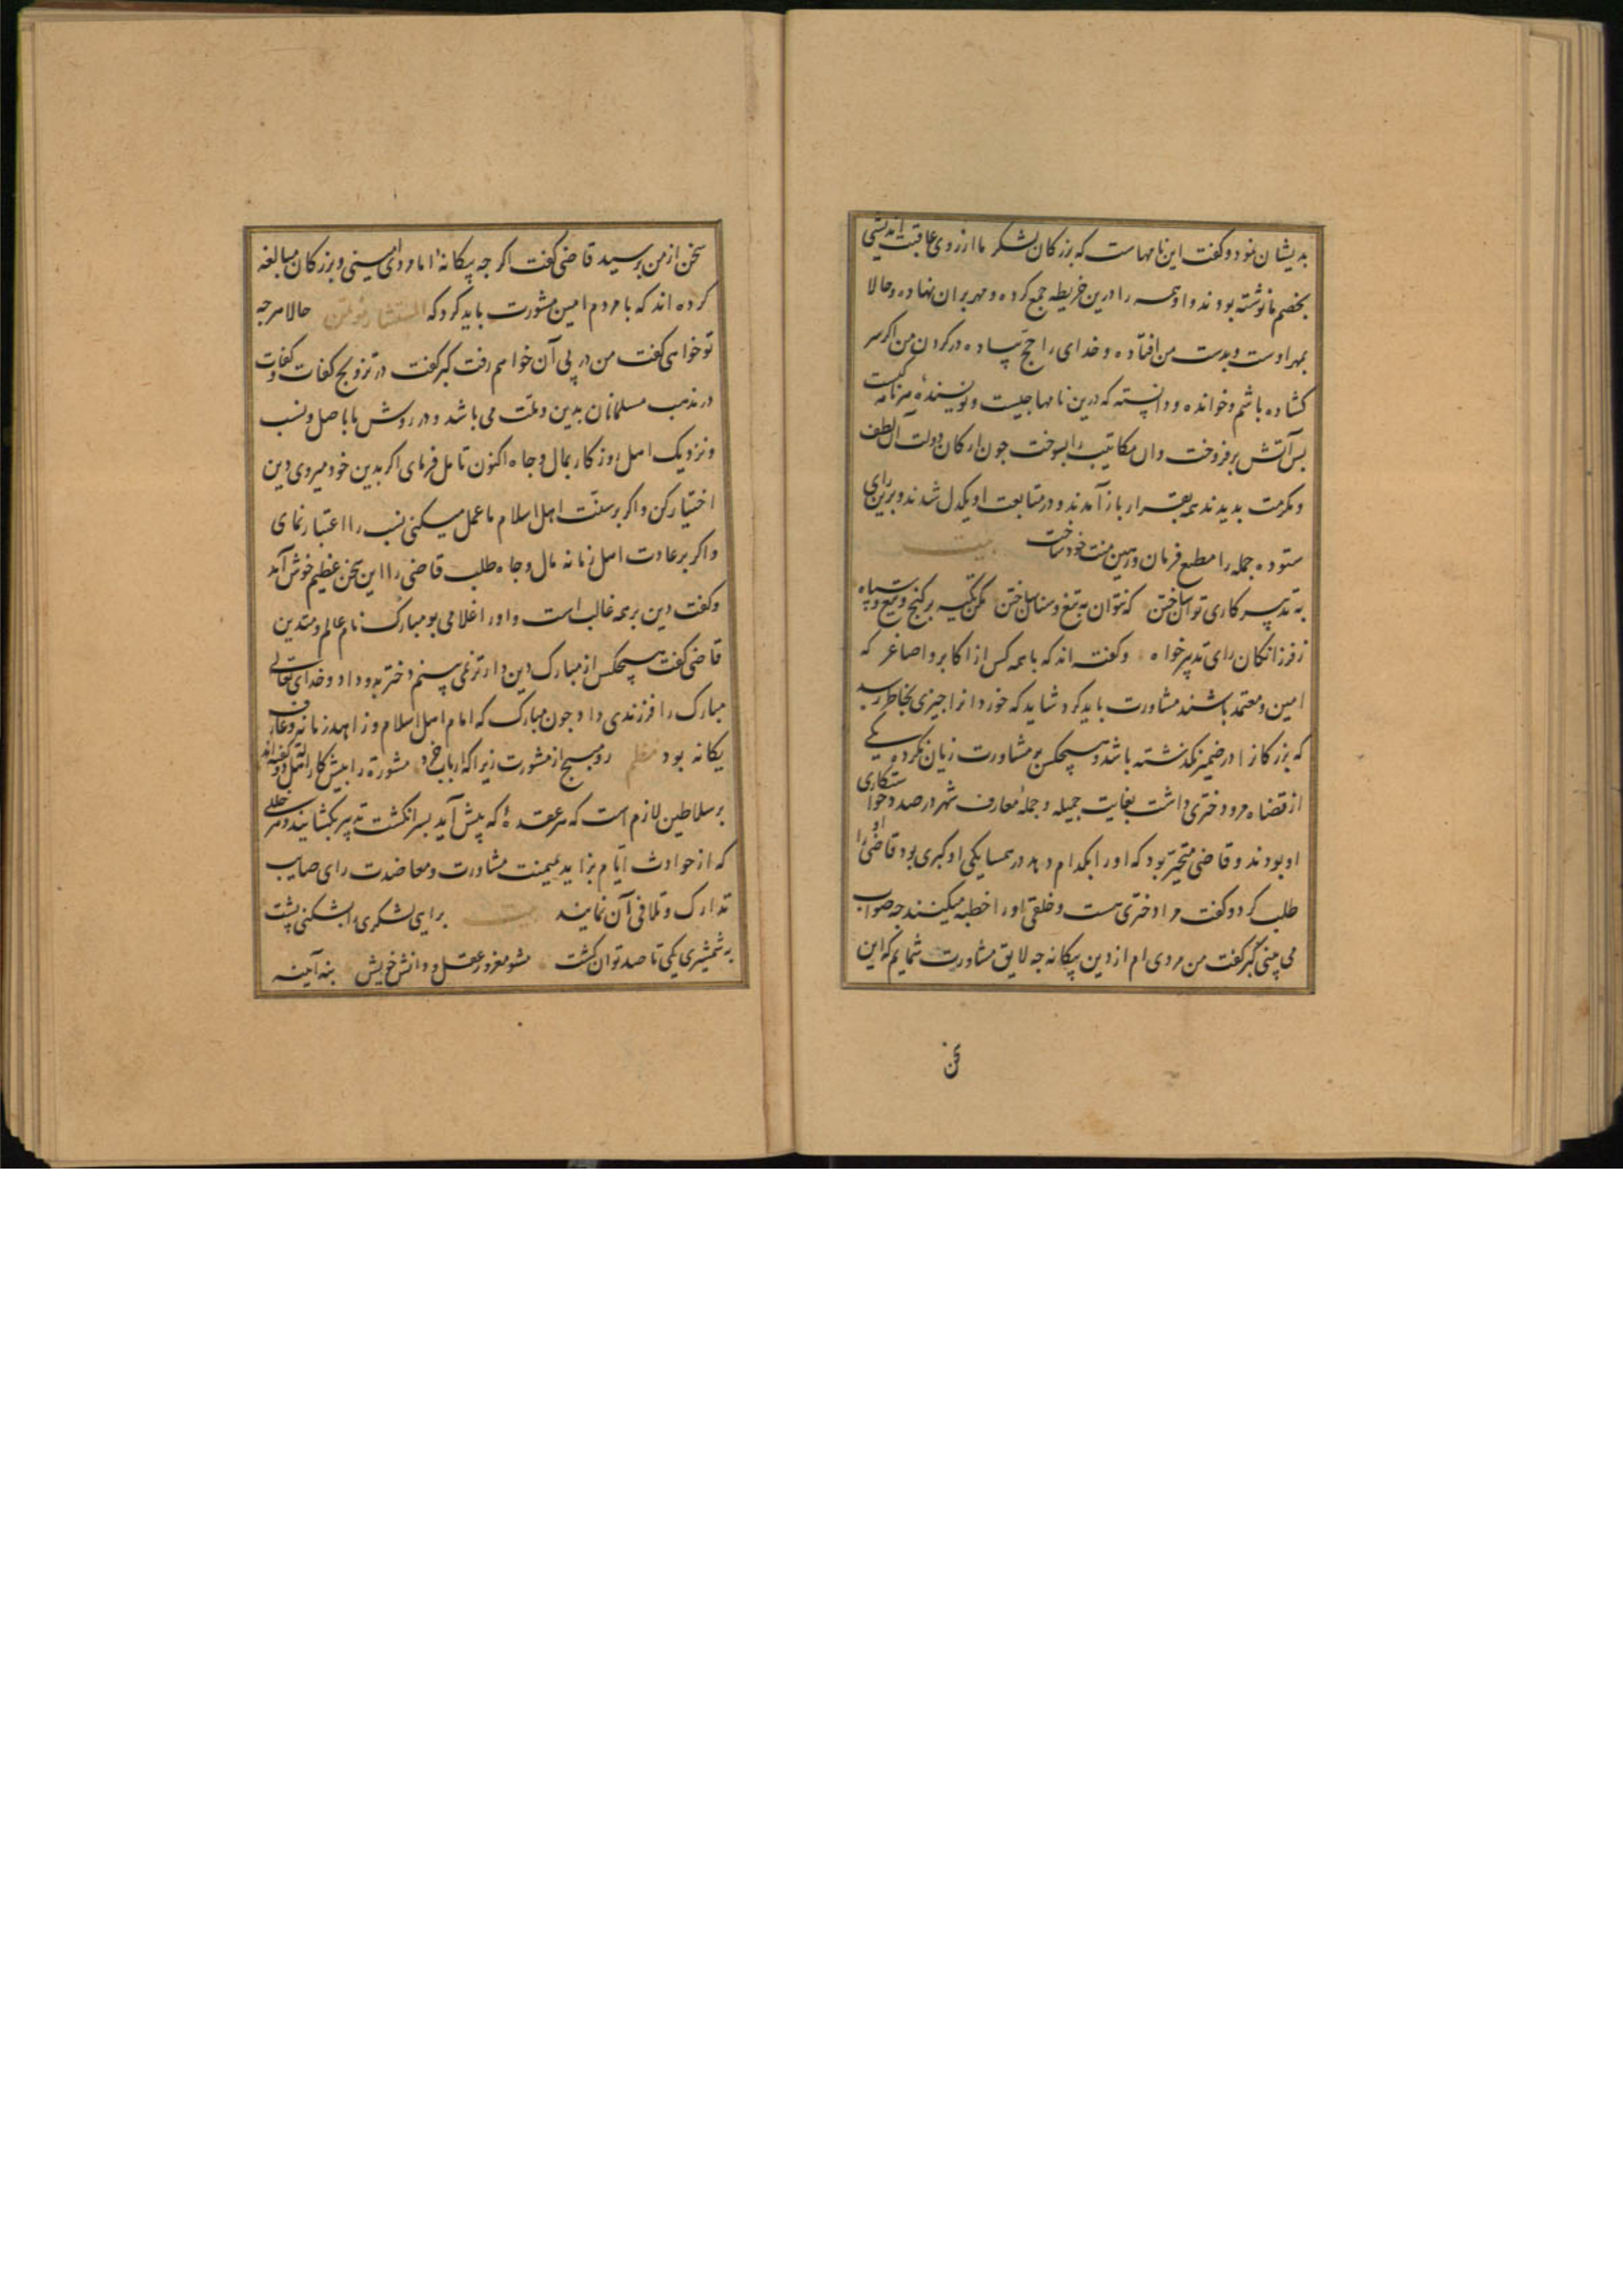 بدیشان نمود و کفت این نامهاست که بزرکان لشکر ما از روی عاقبت اندیشی
بخصم ما نوشته بودند و او همه را درین خریطه جمع کرده و مهر بران نهاده و حالا
بمهر اوست و بدست من افتاده و خدای را حج پیاده در کردن من اکر سر
کشاده باشم و خوانده و دانسته که درین نامها جیست و نویسنده هر نامه کیست
بس آتش بر فروخت و ان مکاتیب را بسوخت جون ارکان دولت آن لطف
و مکرمت بدیدند همه بقرار باز آمدند و در متابعت او یکدل شدند و برین رای
ستوده جمله را مطیع فرمان و رهین منت خود ساخت بیت
به تدبیر کاری توان ساختن که نتوان به تیغ و سنان ساختن مکن تکیه بر کنج و تیغ و سپاه
ز فرزانکان رای تدبیر خواه و کفته اند که با همه کس از اکابر و اصاغر که
امین و معتمد باشند مشاورت باید کرد شاید که خوردانرا جیزی بخاطر رسد
که بزرکانرا در ضمیر نکذشته باشد و هیچکس بر مشاورت زیان نکرده یکی
از قضاه مرو دختری داشت بغایت جمیله و جملهٔ معارف شهر در صدد خواستکاری
او بودند و قاضی متحیر بود که او را بکدام دهد در همسایکی او کبری بود قاضی او را
طلب کرد و کفت مرا دختری هست و خلقی او را خطبه میکنند جه صواب
می بینی کبر کفت من مردی ام از دین بیکانه جه لایق مشاورت شمایم که این
سخن
سخن از من پرسید قاضی کفت اکر جه بیکانهٔ اما مردی امینی و بزرکان مبالغه
کرده اند که با مردم امین مشورت باید کرد که المستشار مؤتمن حالا هر جه
تو خواهی کفت من در پی آن خواهم رفت کبر کفت در تزویج کفات و کفات
در مذهب مسلمانان بدین و ملت می باشد و در روش ما باصل و نسب
و نزدیک اهل روزکار بمال و جاه اکنون تامل فرمای اکر بدین خود میروی دین
اختیار کن و اکر بر سنت اهل اسلام ما عمل میکنی نسب را اعتبار نمای
و اکر بر عادت اهل زمانه مال و جاه طلب قاضی را این سخن عظیم خوش آمد
و کفت دین بر همه غالب است و او را غلامی بو مبارک نام عالم و متدین
قاضی کفت هیچکس از مبارک دین دارتر نمی بینم دختر بدو داد و خدای تعالی
مبارک را فرزندی داد جون مبارک که امام اهل اسلام و زاهد زمانه و عارف
یکانه بود نظم رو مبیج از مشورت زیرا که ارباب خرد مشورة را بیش کار اهل دولت کفته اند
بر سلاطین لازم است که هر عقدهٔ که پیش آید بسر انکشت تدبیر بکشایند و هر خللی
که از حوادث ایام بزاید بمیمنت مشاورت و معاضدت رای صایب
تدارک و تلافی آن نمایند بیت برایی لشکری را بشکنی پشت
به شمشیری یکی تا صد توان کشت مشو مغرور عقل و دانش خویش بنه آینه